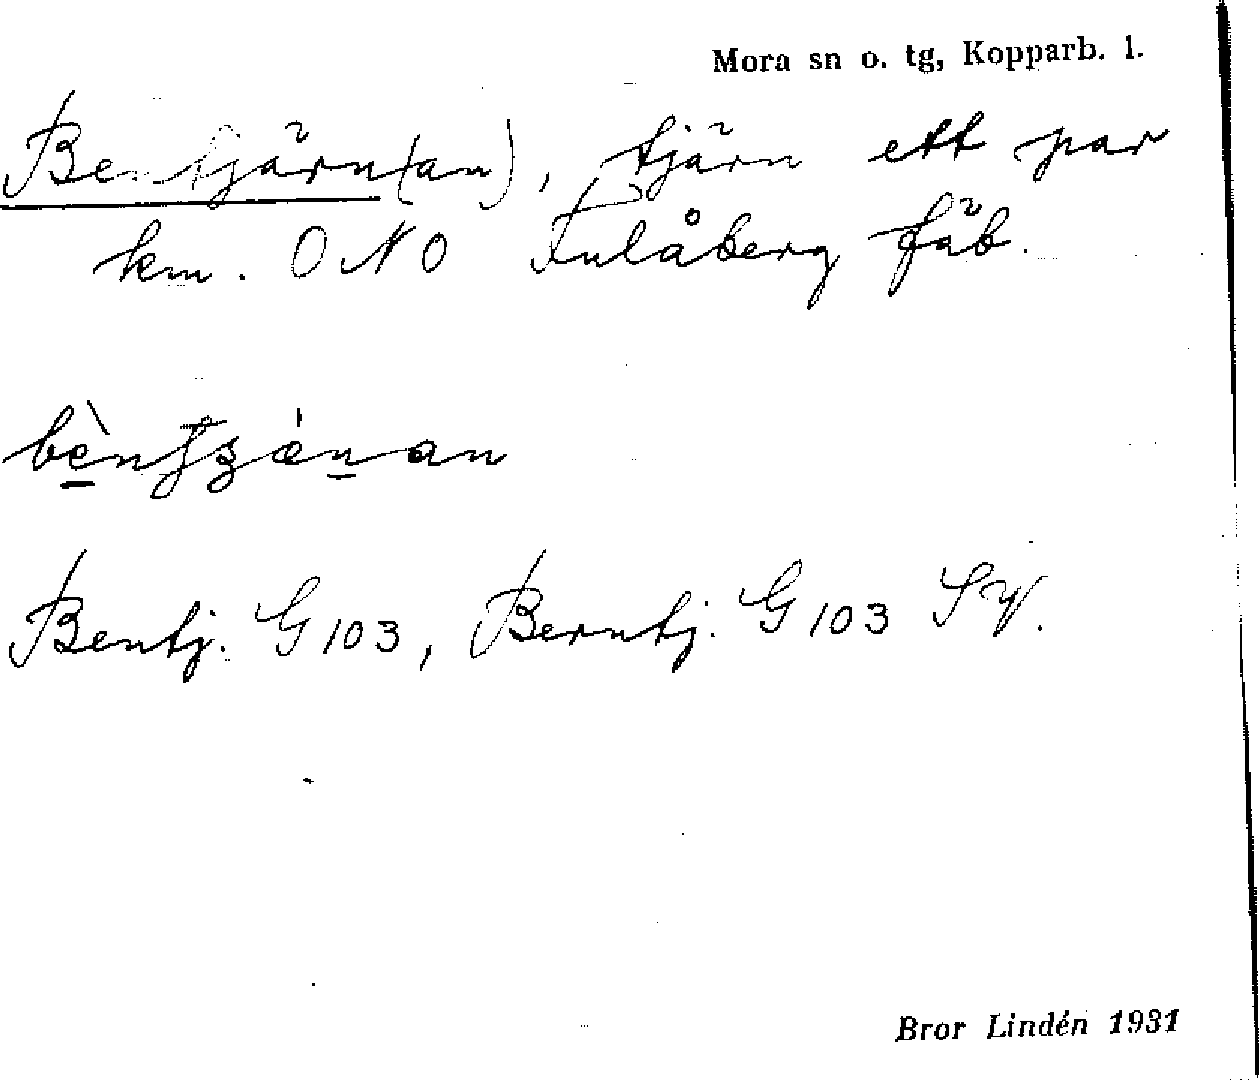 Mora sn o. tg, Kopparb. l.
Bentjärn(an), tjärn ett par
km. ONO Fulåberg fäb.
Bentj. G 103, Berntj. G 103
Bror Lindén 1931